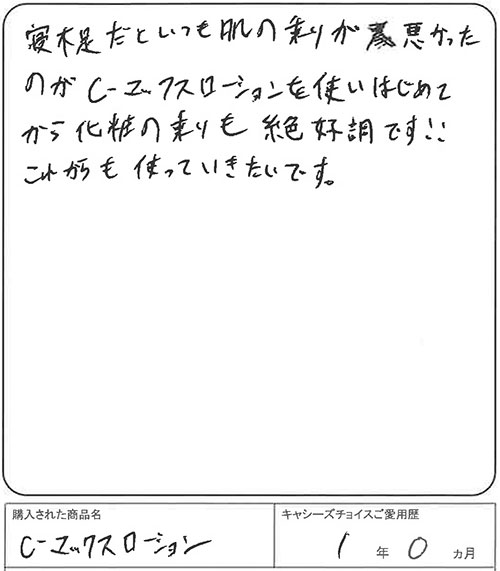 寝不足だといつも肌の乗りが悪かった
のがC-エックスローションを使いはじめて
から化粧の乗りも絶好調です!!
これからも使っていきたいです。
購入された商品名
キャシーズチョイスご愛用歴
C-エックスローション
1年0ヵ月